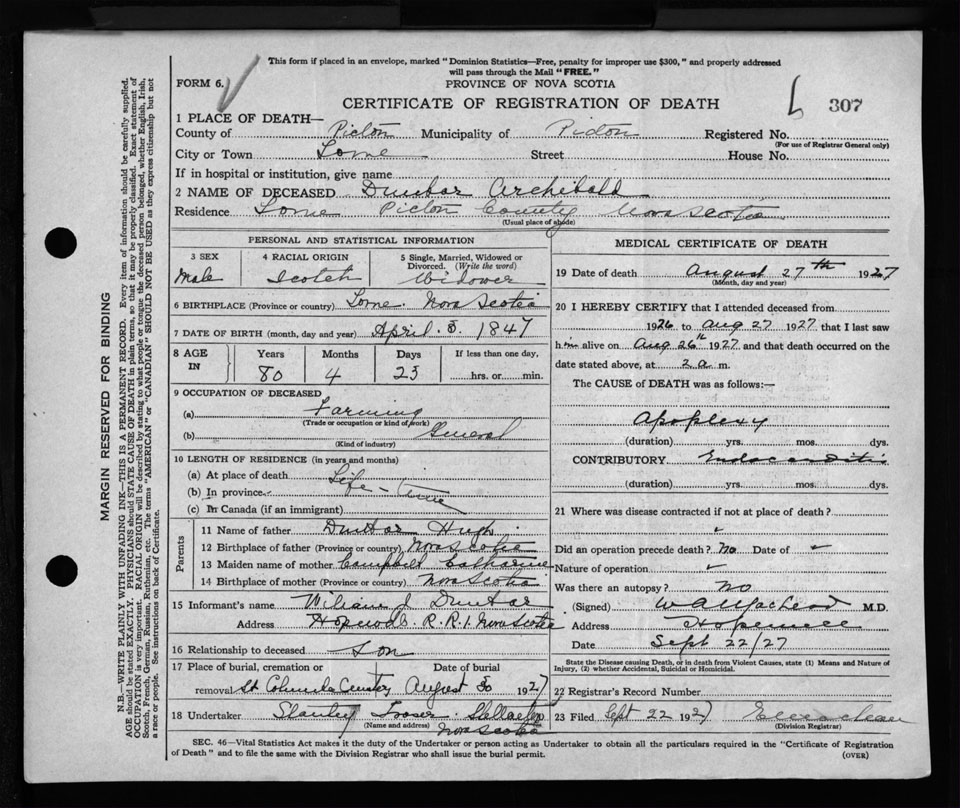 This form if placed in an envelope, marked "Dominion Statistics—Free, penalty for improper use $300," and properly addressed
will pass through the Mail "FREE."
FORM 6.
PROVINCE OF NOVA SCOTIA
CERTIFICATE OF REGISTRATION OF DEATH
6 307
1 PLACE OF DEATH—
County of Pictou Municipality of Pictou Registered No.
(For use of Registrar General only)
City or Town Lorne Street House No.
If in hospital or institution, give name
2 NAME OF DECEASED Dunbar Archibald
Residence Lorne Pictou County Nova Scotia
(Usual place of abode)
PERSONAL AND STATISTICAL INFORMATION
3 SEX
Male
4 RACIAL ORIGIN
Scotch
5 Single, Married, Widowed or
Divorced. (Write the word)
Widower
6 BIRTHPLACE (Province or country) Lorne Nova Scotia
7 DATE OF BIRTH (month, day and year) April. 5. 1847
8 AGE
IN
Years Months Days If less than one day,
80 4 23 hrs. or min.
9 OCCUPATION OF DECEASED
(a) Farming
(Trade or occupation or kind of work)
(b) General
(Kind of industry)
10 LENGTH OF RESIDENCE (in years and months)
(a) At place of death Life-time
(b) In province
(c) In Canada (if an immigrant)
Parents
11 Name of father Dunbar Hugh
12 Birthplace of father (Province or country) Nova Scotia
13 Maiden name of mother Campbell Catharine
14 Birthplace of mother (Province or country) Nova Scotia
15 Informant's name William J. Dunbar
Address Hopewell R.R.1. Nova Scotia
16 Relationship to deceased Son
17 Place of burial, cremation or Date of burial
removal St Columba Cemetery August 30 1927
18 Undertaker Stanley Fraser Stellarton
(Name and address) Nova Scotia
MEDICAL CERTIFICATE OF DEATH
19 Date of death August 27th 1927
(Month, day and year)
20 I HEREBY CERTIFY that I attended deceased from
1926 to Aug 27 1927 that I last saw
him alive on Aug 26th 1927 and that death occurred on the
date stated above, at 2 a m.
The CAUSE of DEATH was as follows:—
Apoplexy
(duration) yrs. mos. dys.
CONTRIBUTORY Endocarditis
(duration) yrs. mos. dys.
21 Where was disease contracted if not at place of death?
Did an operation precede death? No Date of
Nature of operation
Was there an autopsy? No
(Signed) M.D.
Address Hopewell
Date Sept 22/27
State the Disease causing Death, or in death from Violent Causes, state (1) Means and Nature of
Injury, (2) whether Accidental, Suicidal or Homicidal.
22 Registrar's Record Number
23 Filed Sept 22 1927
(Division Registrar)
SEC. 46—Vital Statistics Act makes it the duty of the Undertaker or person acting as Undertaker to obtain all the particulars required in the "Certificate of Registration
of Death" and to file the same with the Division Registrar who shall issue the burial permit.
(OVER)
MARGIN RESERVED FOR BINDING
N.B.—WRITE PLAINLY WITH UNFADING INK—THIS IS A PERMANENT RECORD. Every item of information should be carefully supplied.
AGE should be stated EXACTLY. PHYSICIANS should STATE CAUSE OF DEATH in plain terms, so that it may be properly classified. Exact statement of
OCCUPATION is very important. RACIAL ORIGIN will be described by stating to what people or tongue the deceased person belonged, whether English, Irish,
Scotch, French, German, Russian, Ruthenian, etc. The terms "AMERICAN" or "CANADIAN" SHOULD NOT BE USED as they express citizenship but not
a race or people. See instructions on back of Certificate.